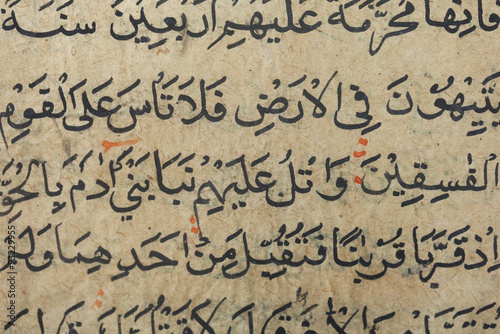 فَاِنَّهَا مُحَرَّمَةٌ عَلَيْهِمْ اَرْبَعِيْنَ سَنَةً
يَتِيْهُوْنَ فِي الْاَرْضِ فَلَا تَاْسَ عَلَى الْقَوْمِ
الْفٰسِقِيْنَ وَاتْلُ عَلَيْهِمْ نَبَاَ بَنَيْ اٰدَمَ بِالْحَقِّ
اِذْ قَرَّبَا قُرْبَانًا فَتُقُبِّلَ مِنْ اَحَدِهِمَا وَلَمْ